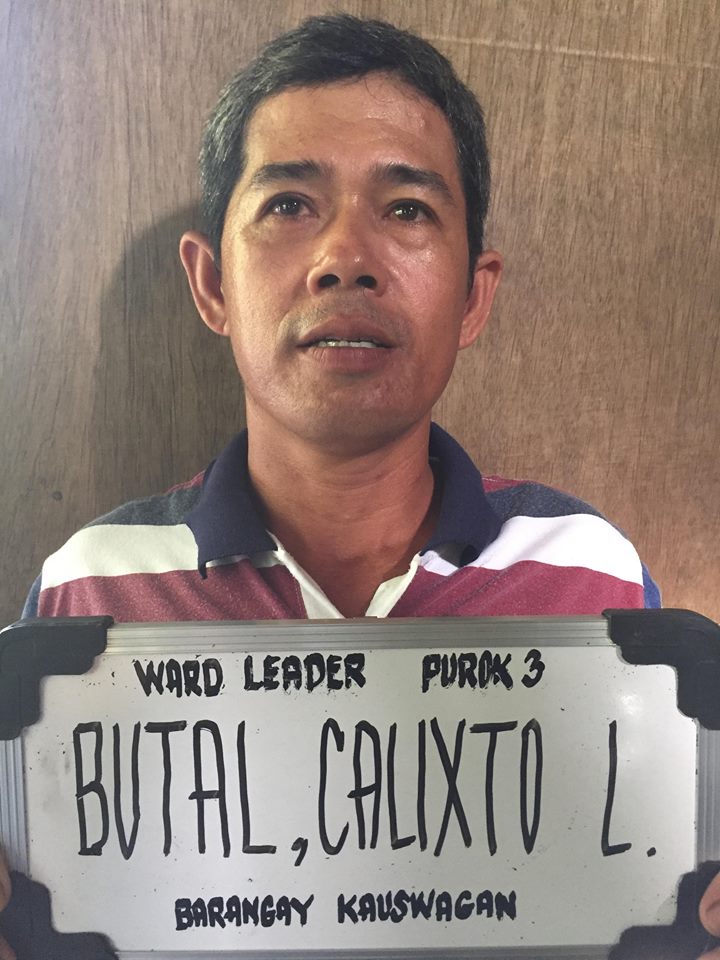 WARD LEADER PUROK 3
BUTAL, CALIXTO L.
BARANGAY KAUSWAGAN